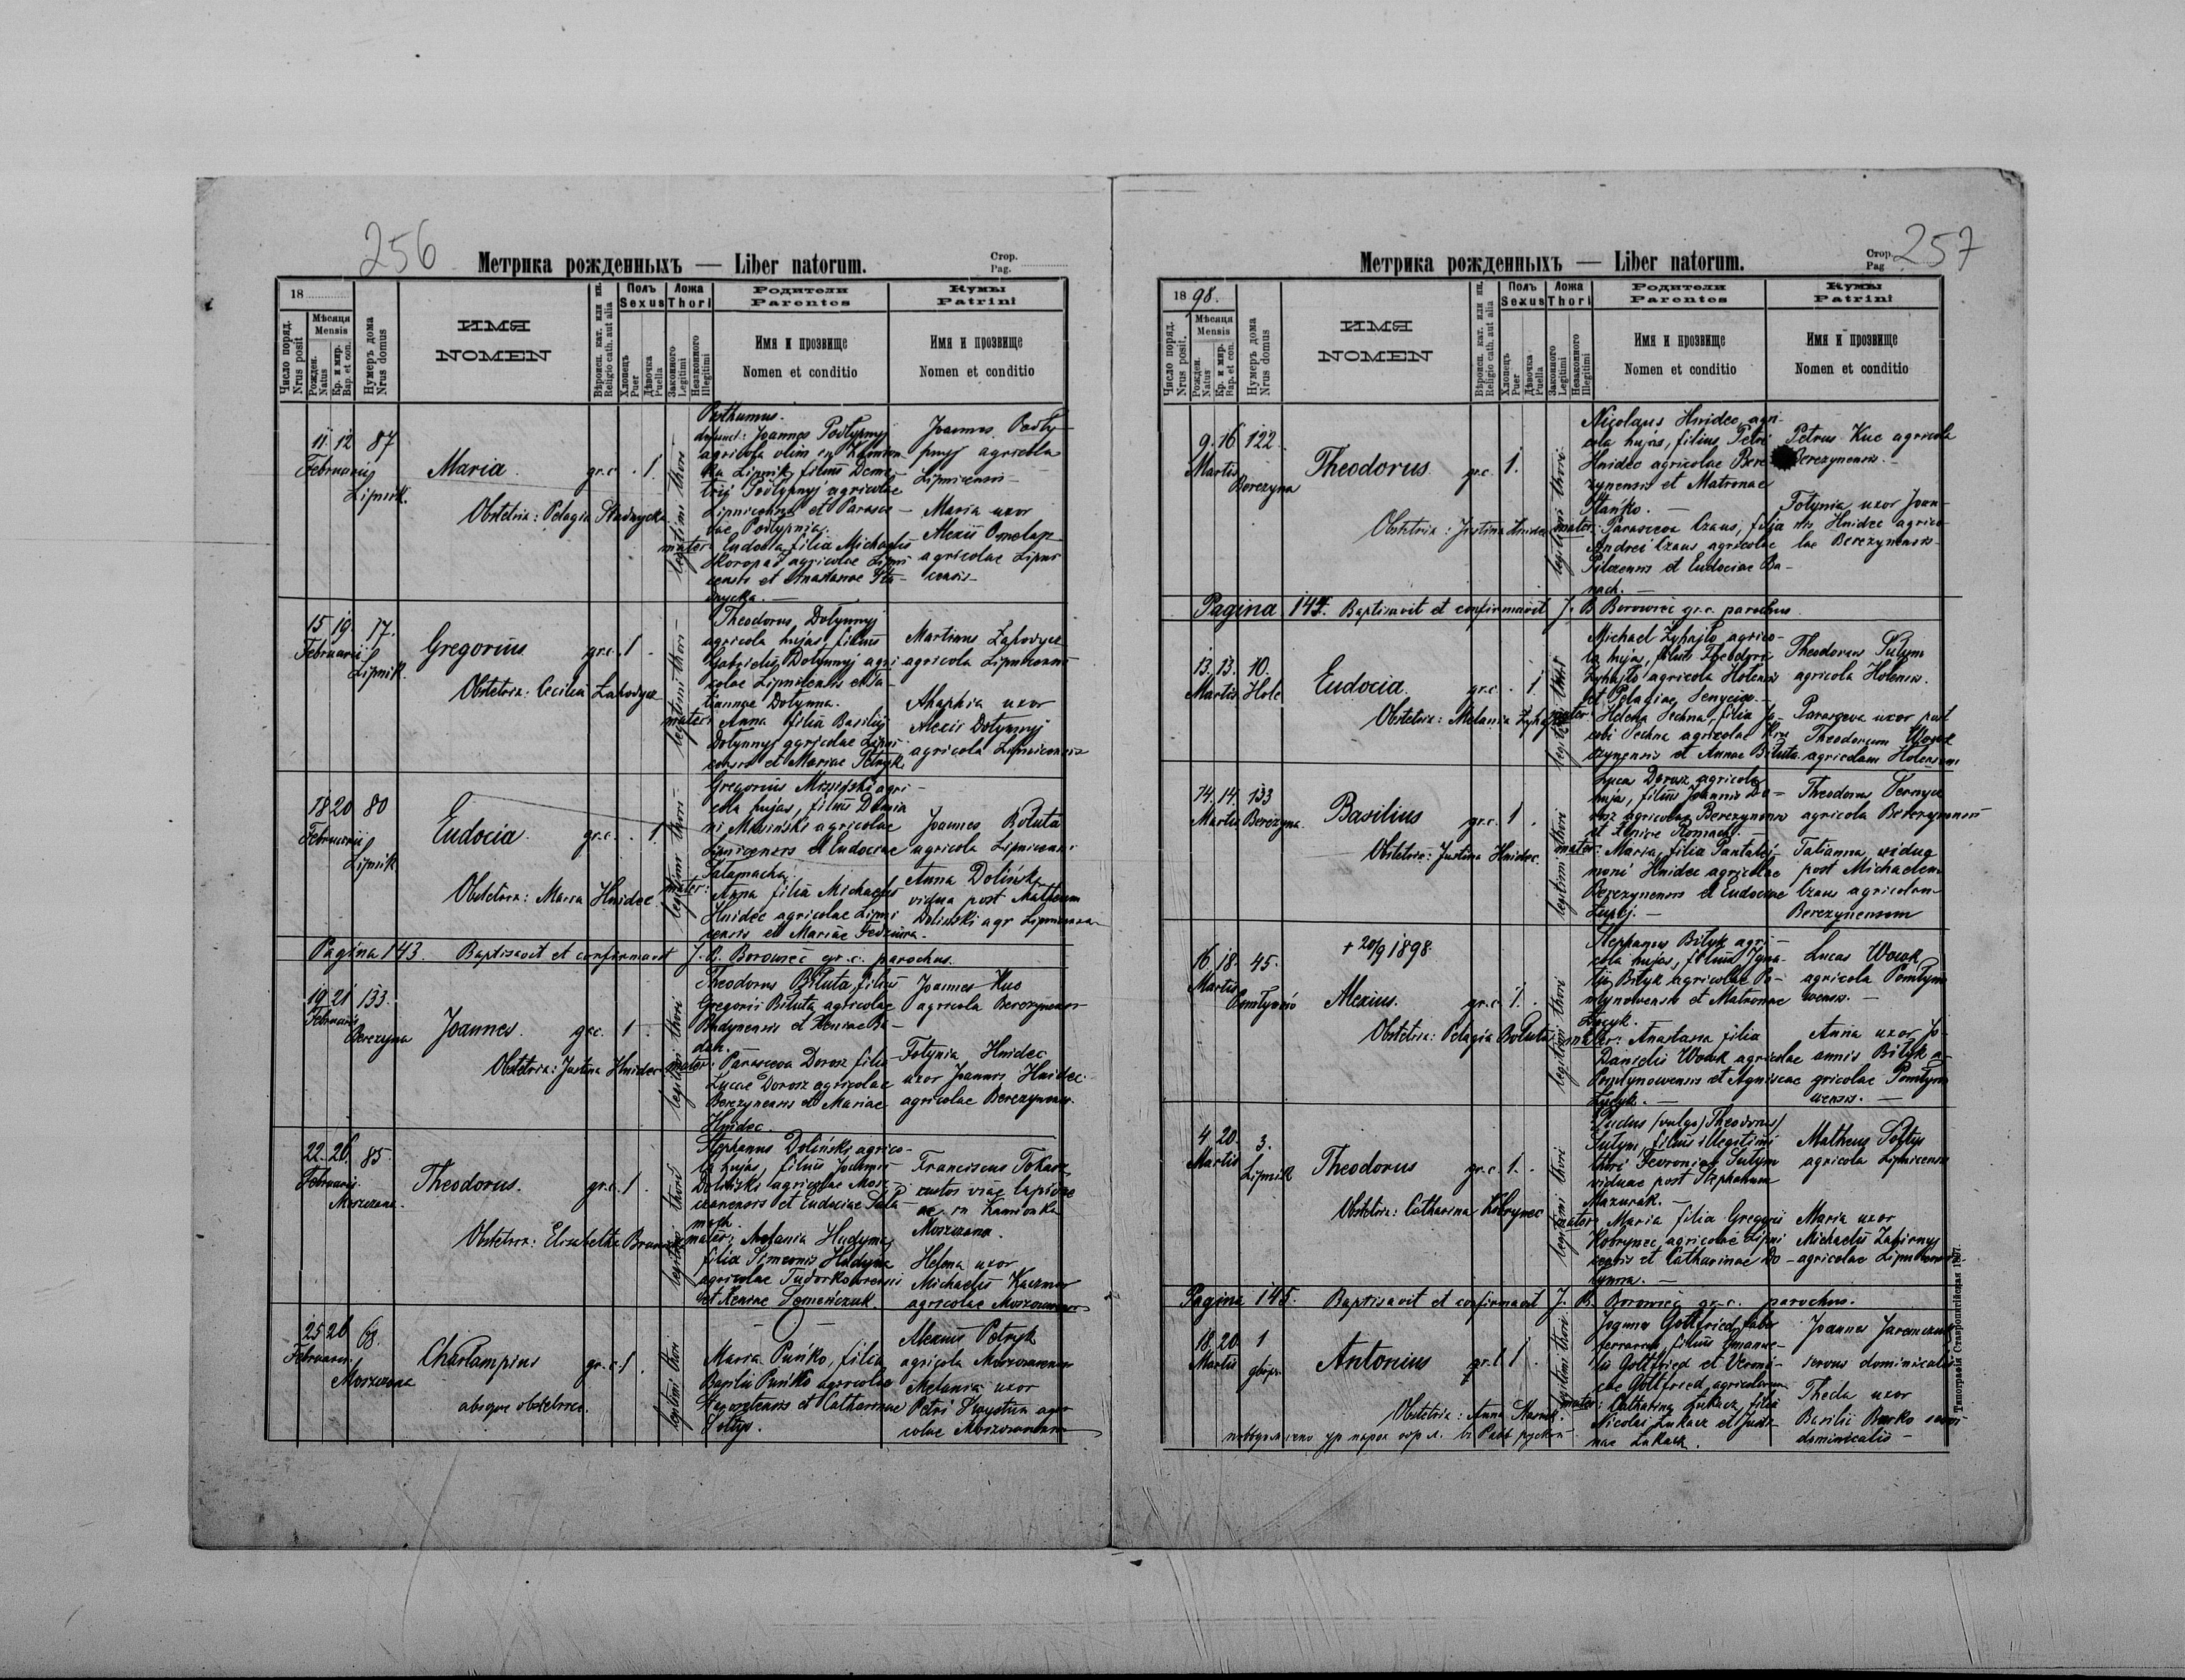 256
Метрика рожденныхъ — Liber natorum.
Стор.
Pag.
18
Число поряд.
Nrus posit
Мѣсяця
Mensis
Рожден.
Natus
Кр. и мир.
Bap. et con.
Нумеръ дома
Nrus domus
ИМЯ
NOMEN
Вѣроисп. кат. или ин.
Religio cath. aut alia
Полъ
Sexus
Хлопецъ
Puer
Дѣвочка
Puella
Ложа
Thori
Законного
Legitimi
Незаконного
Illegitimi
Родители
Parentes
Имя и прозвище
Nomen et conditio
Кумы
Patrini
Имя и прозвище
Nomen et conditio
11 12 87
Februarij
Lipnik.
Maria
gr.c. . 1.
Obstetrix: Pelagia Stadnycka
legitimi thori
Posthumus.
defunct: Joannes Podlypnyj
agricola olim in Kamion-
ka Lipnik, filius Deme-
trij Podlypnyj agricolae
Lipnicensis et Parasce-
vae Podlypnia.
mater: Eudocia filia Michaelis
Skoropad agricolae Lipni
censis et Anastasiae Sta-
dnycka. —
Joannes Podly-
pnyj agricola
Lipnicensis —
Maria uxor
Alexii Omelan
agricolae Lipni
censis —
15 19 17.
Februarij
Lipnik.
Gregorius
gr.c. 1 .
Obstetrix: Cecilia
legitimi thori
Theodorus Dolynnyj
agricola hujas, filius
Gabrielis Dolynnyj agri
colae Lipnicensis et Ta-
tiannae Dolynna.
mater: Anna filia Basilij
Dolynnyj agricolae Lipni
censis et Mariae Petryk.
Martinus
agricola Lipnicensis
Ahaphia uxor
Alexii Dolynnyj
agricola Lipnicensis
18 20 80
Februarij
Lipnik
Eudocia
gr.c. . 1.
Obstetrix: Maria Hnidec
legitimi thori
Gregorius Misiński agri-
cola hujas, filius Damia
ni Misiński agricolae
Lipnicensis et Eudociae
Salamacha.
mater:
Anna filia Michaelis
Hnidec agricolae Lipni
censis et Mariae
Joannes Boluta
agricola Lipnicensis
Anna Dolińska
vidua post Matheum
Doliński agr Lipnicensem
Pagina 143. Baptisavit et confirmavit J. B. Borowiec gr.c. parochus.
19 21 133.
Februarii
Berezyna
Joannes.
gr.c. 1 .
Obstetrix: Justina Hnidec
legitimi thori
Theodorus Biluta, filius
Gregorii Biluta agricolae
et Xeniae
mater: Parasceva Dorosz filia
Lucae Dorosz agricolae
Berezynensis et Mariae
Hnidec.
Joannes Kuc
agricola Berezynensis
Fotynia Hnidec
uxor Joannis Hnidec
agricolae Berezynensis.
22. 26. 85.
Februarij
Moszczana.
Theodorus.
gr.c. 1 .
Obstetrix: Elisabetha
legitimi thori
Stephanus Doliński agrico-
la hujas, filius Joannis
Doliński agricolae Mosz-
czanensis et Eudociae Sala
mach.
mater: Melania Hudyma
filia Simeonis Hudyma
agricolae
et Xeniae Semeńczuk.
Franciscus Tokarz
custos viae lapide
ae in Kamionka
Moszczana.
Helena uxor
Michaelis Kaczmar
agricolae Moszczanensis
25 26 68.
Februarii
Moszczana
Charlampius
gr.c. 1 .
absque obstetrice.
legitimi thori
— —
Maria Puńko, filia
Basilii Puńko agricolae
et Catharinae
Soltys.
Alexius Petryk
agricola Moszczanensis
Melania uxor
Petri agri-
colae Moszczanensis
257
Метрика рожденныхъ — Liber natorum.
Стор.
Pag
1898.
Число поряд.
Nrus posit.
Мѣсяця
Mensis
Рожден.
Natus
Кр. и мир.
Bap. et con.
Нумеръ дома
Nrus domus
ИМЯ
NOMEN
Вѣроисп. кат. или ин.
Religio cath. aut alia
Полъ
Sexus
Хлопецъ
Puer
Дѣвочка
Puella
Ложа
Thori
Законного
Legitimi
Незаконного
Illegitimi
Родители
Parentes
Имя и прозвище
Nomen et conditio
Кумы
Patrini
Имя и прозвище
Nomen et conditio
9. 16 122.
Martis
Berezyna
Theodorus
gr.c. 1. .
Obstetrix: Justina Hnidec
legitimi thori
Nicolaus Hnidec, agri-
cola hujas, filius Petri
Hnidec agricolae Bere
zynensis et Matronae
Hańko. —
mater: Parasceva Czaus, filia
Andrei Czaus agricolae
et Eudociae Ba-
nach. —
Petrus Kuc agricola
Berezynensis. —
Fotynia uxor Joan-
nis Hnidec agrico-
lae Berezynensis
Pagina 144. Baptisavit et confirmavit J. B. Borowiec gr.c. parochus
13. 13. 10.
Martis Hole
Eudocia.
gr.c. . 1.
Obstetrix: Melania Zyhajlo
legitimi thori
Michael Zyhajlo agrico-
la hujas, filius Theodori
Zyhajlo agricola Holensis
et Pelagiae
mater: Helena Sechna, filia Ja-
cobi Sechna agricolae
et Annae Biluta.
Theodorus Sutym
agricola Holensis.
Parasceva uxor post
Theodorum Wowk
agricolam Holensem
14. 14. 133
Martis Berezyna.
Basilius
gr.c. 1 .
Obstetrix: Justina Hnidec.
legitimi thori
Lucas Dorosz agricola
hujas, filius Joannis Do-
rosz agricolae Berezynensis
et Xeniae Romach. —
mater: Maria, filia Pantalei-
moni Hnidec agricolae
Berezynensis et Eudociae
Theodorus
agricola Berezynensis
Tatianna vidua
post Michaelem
Czaus agricolam
Berezynensem
16 18. 45.
Martis
+ 20/9 1898
Alexius.
gr.c. 1. .
Obstetrix: Pelagia Boluta
legitimi thori
Stephanus Bilyk agri-
cola hujas, filius Igna-
tij Bilyk agricolae Po-
mlynowensis et Matronae
mater: Anastasia filia
Danielis Wowk agricolae
Pomlynowensis et Agnisae
Lucas Wowk
agricola Pomlyno
wensis. —
Anna uxor Jo-
annis Bilyk a-
gricolae Pomlyno
wensis. —
4 20. 3.
Martis
Lipnik
Theodorus
gr.c. 1. .
Obstetrix: Catharina Kobrynec
legitimi thori
(vulgo Theodorus)
Sutym, filius illegitimi
thori Fevroniae Sutym
viduae post Stephanum
Mazurak. —
mater: Maria filia Gregorii
Kobrynec agricolae Lipni
censis et Catharinae Do-
lynna. —
Matheus Soltys
agricola Lipnicensis
Maria uxor
Michaelis Zabirnyj
agricolae Lipnicensis
Pagina 145. Baptisavit et confirmavit J. B. Borowiec gr.c. parochus.
18. 20. 1
Martis
Antonius
gr.c 1 .
Obstetrix: Anna
legitimi thori
Gottfried, faber
ferrarius, filius Emanue-
lis Gottfried et Veroni-
cae Gottfried agricolarum
mater: Catharina Lukacz, filia
Nicolai Lukacz et Justi-
nae Lukacz.
Joannes Jaremczuk
servus dominicalis
Thecla uxor
Basilii Burko servi
dominicalis —
Типографія Ставропигійская 1897.